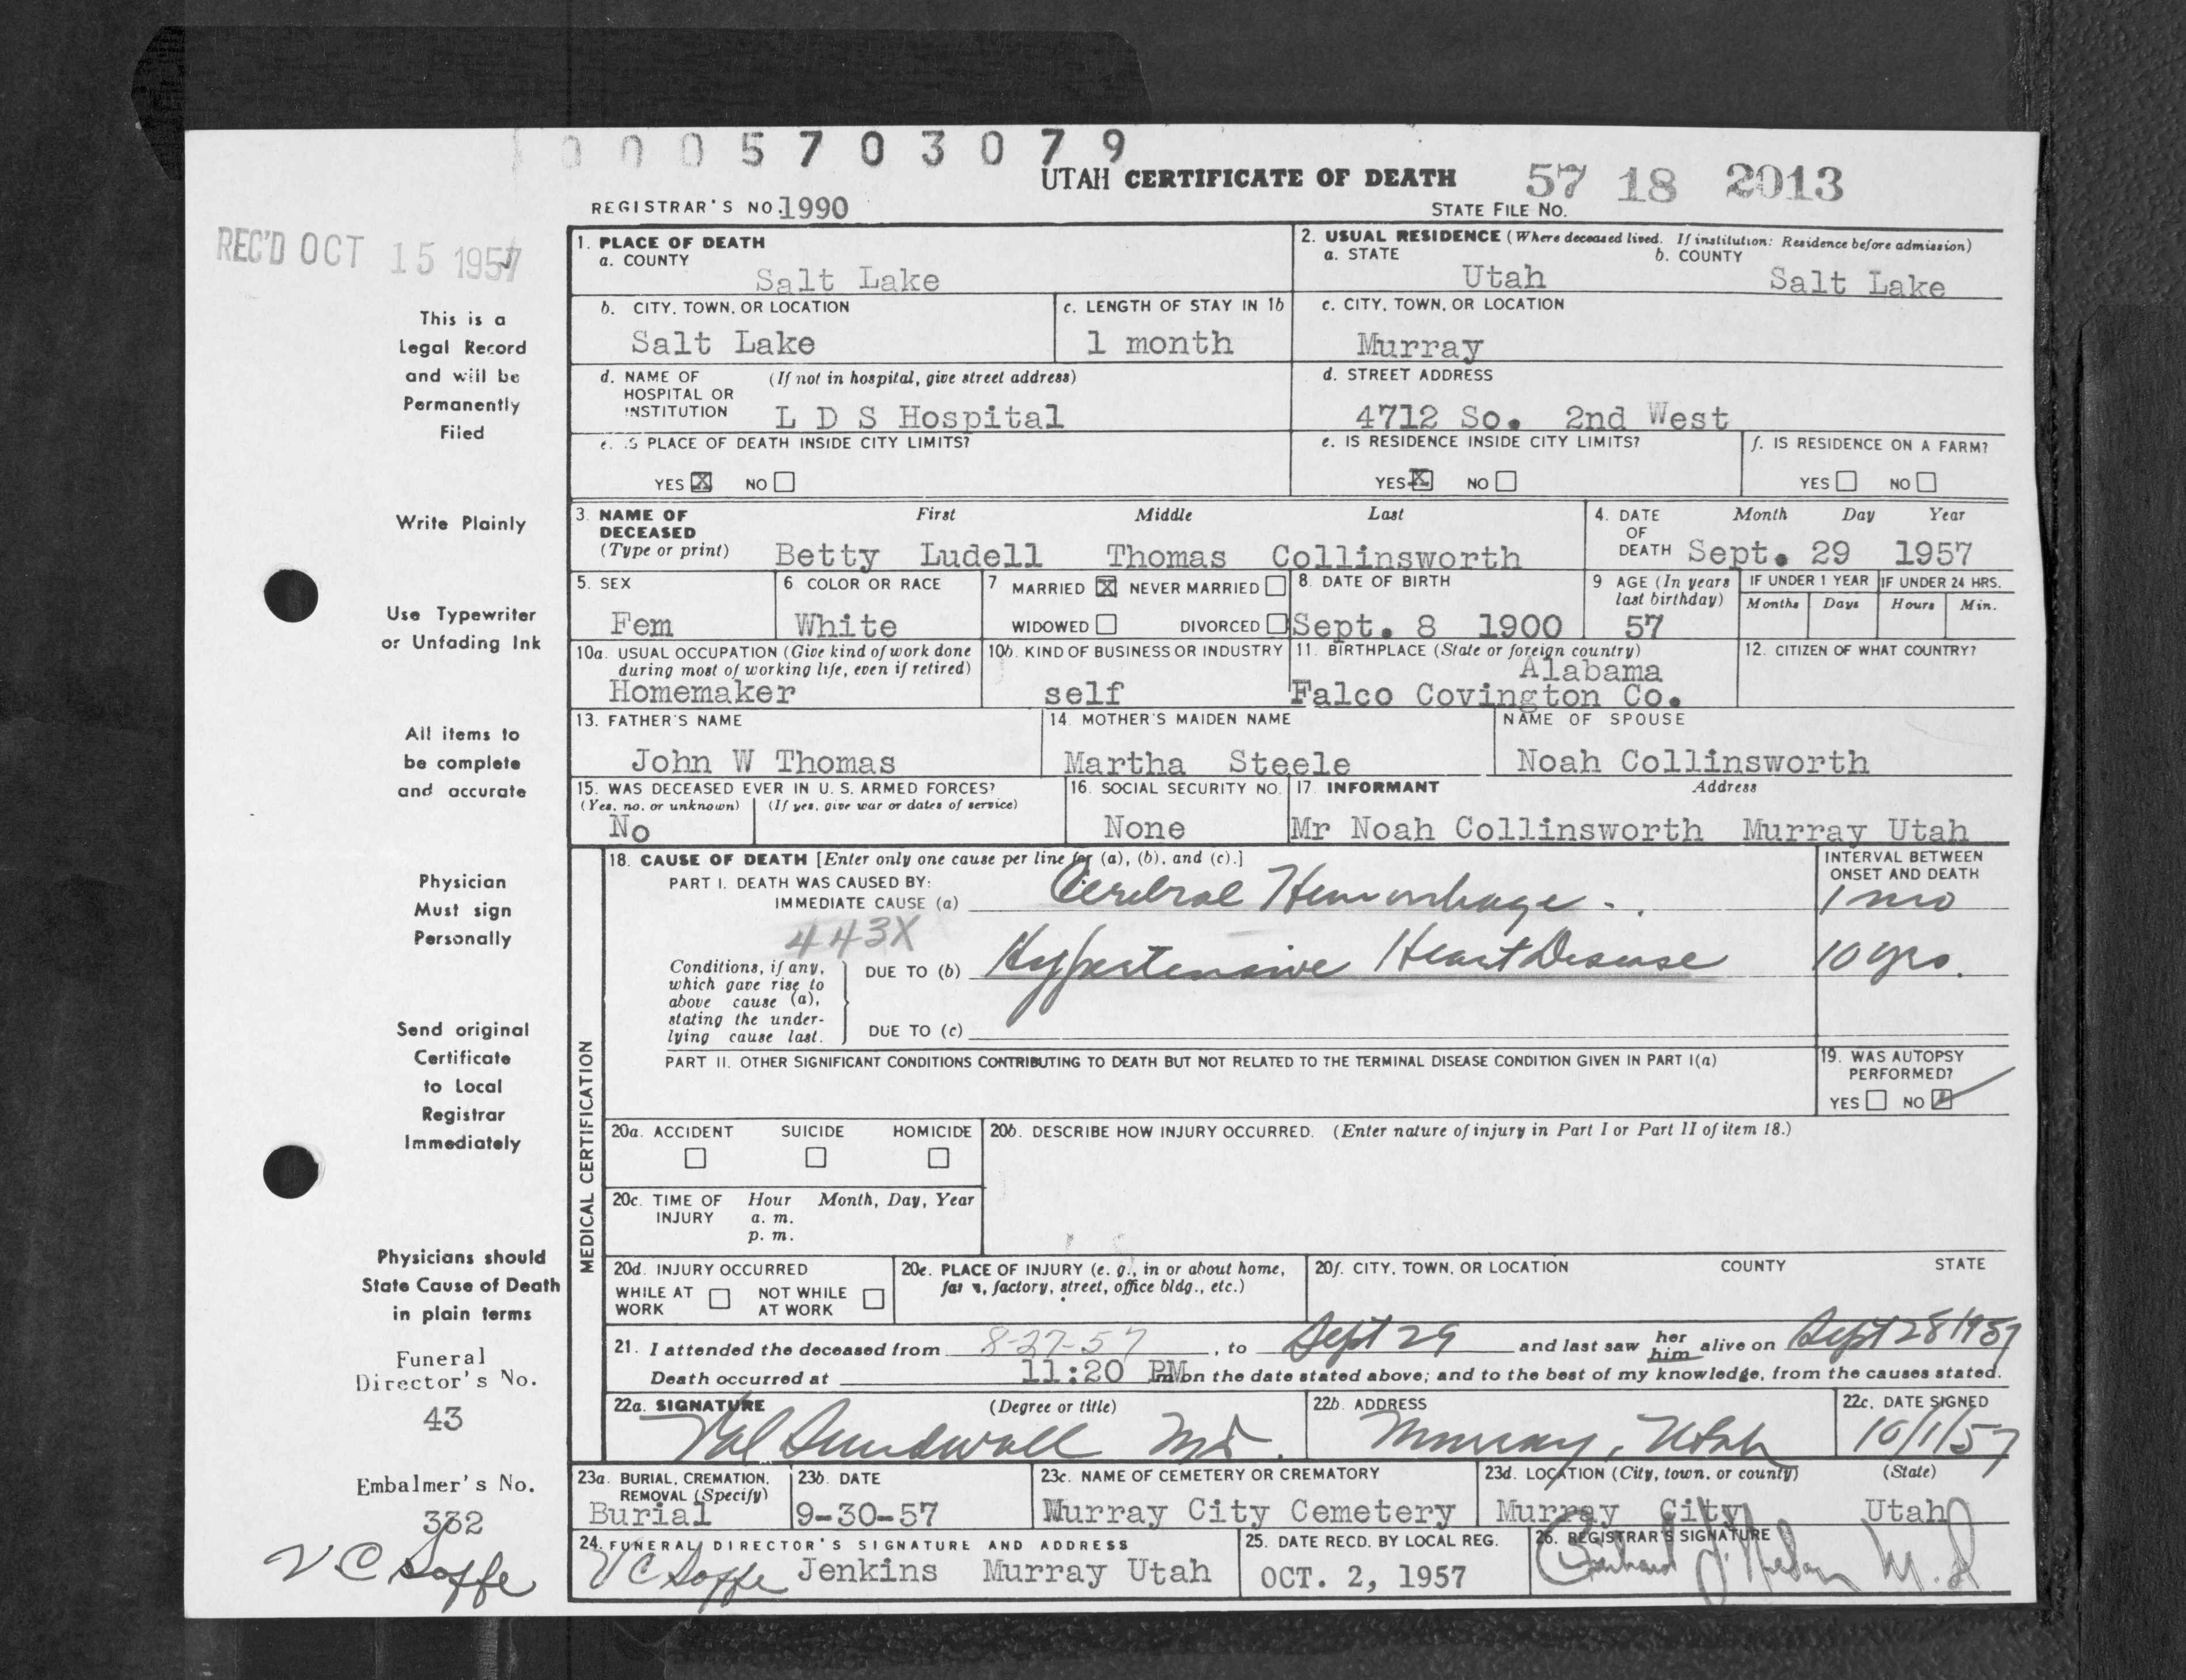 0005703079
UTAH CERTIFICATE OF DEATH 57 18 2013
REGISTRAR'S NO. 1990 STATE FILE No.
REC'D OCT 15 1957
This is a
Legal Record
and will be
Permanently
Filed
Write Plainly
Use Typewriter
or Unfading Ink
All items to
be complete
and accurate
Physician
Must sign
Personally
Send original
Certificate
to Local
Registrar
Immediately
Physicians should
State Cause of Death
in plain terms
Funeral
Director's No.
43
Embalmer's No.
332
V C Soffe
1. PLACE OF DEATH
a. COUNTY
Salt Lake
2. USUAL RESIDENCE (Where deceased lived. If institution: Residence before admission)
a. STATE b. COUNTY
Utah Salt Lake
b. CITY, TOWN, OR LOCATION
Salt Lake
c. LENGTH OF STAY IN 1b
1 month
c. CITY, TOWN, OR LOCATION
Murray
d. NAME OF (If not in hospital, give street address)
HOSPITAL OR
INSTITUTION L D S Hospital
d. STREET ADDRESS
4712 So. 2nd West
e. IS PLACE OF DEATH INSIDE CITY LIMITS?
YES X NO
e. IS RESIDENCE INSIDE CITY LIMITS?
YES X NO
f. IS RESIDENCE ON A FARM?
YES NO
3. NAME OF First Middle Last
DECEASED
(Type or print) Betty Ludell Thomas Collinsworth
4. DATE Month Day Year
OF
DEATH Sept. 29 1957
5. SEX
Fem
6 COLOR OR RACE
White
7 MARRIED X NEVER MARRIED
WIDOWED DIVORCED
8. DATE OF BIRTH
Sept. 8 1900
9 AGE (In years
last birthday)
57
IF UNDER 1 YEAR
Months Days
IF UNDER 24 HRS.
Hours Min.
10a. USUAL OCCUPATION (Give kind of work done
during most of working life, even if retired)
Homemaker
10b. KIND OF BUSINESS OR INDUSTRY
self
11. BIRTHPLACE (State or foreign country)
Alabama
Falco Covington Co.
12. CITIZEN OF WHAT COUNTRY?
13. FATHER'S NAME
John W Thomas
14. MOTHER'S MAIDEN NAME
Martha Steele
NAME OF SPOUSE
Noah Collinsworth
15. WAS DECEASED EVER IN U. S. ARMED FORCES?
(Yes, no, or unknown) (If yes, give war or dates of service)
No
16. SOCIAL SECURITY NO.
None
17. INFORMANT Address
Mr Noah Collinsworth Murray Utah
MEDICAL CERTIFICATION
18. CAUSE OF DEATH [Enter only one cause per line for (a), (b), and (c).]
PART I. DEATH WAS CAUSED BY:
IMMEDIATE CAUSE (a) Cerebral Hemorrhage
INTERVAL BETWEEN
ONSET AND DEATH
1 mo
443X
Conditions, if any,
which gave rise to
above cause (a),
stating the under-
lying cause last.
DUE TO (b) Hypertensive Heart Disease 10 yrs.
DUE TO (c)
PART II. OTHER SIGNIFICANT CONDITIONS CONTRIBUTING TO DEATH BUT NOT RELATED TO THE TERMINAL DISEASE CONDITION GIVEN IN PART I(a)
19. WAS AUTOPSY
PERFORMED?
YES NO
20a. ACCIDENT SUICIDE HOMICIDE
20b. DESCRIBE HOW INJURY OCCURRED. (Enter nature of injury in Part I or Part II of item 18.)
20c. TIME OF Hour Month, Day, Year
INJURY a. m.
p. m.
20d. INJURY OCCURRED
WHILE AT NOT WHILE
WORK AT WORK
20e. PLACE OF INJURY (e. g., in or about home,
farm, factory, street, office bldg., etc.)
20f. CITY, TOWN, OR LOCATION COUNTY STATE
21. I attended the deceased from 8-27-57, to Sept 29 and last saw her him alive on Sept 28 1957
Death occurred at 11:20 PM m on the date stated above; and to the best of my knowledge, from the causes stated.
22a. SIGNATURE (Degree or title)
Val Sundwall MD.
22b. ADDRESS
Murray, Utah
22c. DATE SIGNED
10/1/57
23a. BURIAL, CREMATION,
REMOVAL (Specify)
Burial
23b. DATE
9-30-57
23c. NAME OF CEMETERY OR CREMATORY
Murray City Cemetery
23d. LOCATION (City, town, or county) (State)
Murray City Utah
24. FUNERAL DIRECTOR'S SIGNATURE AND ADDRESS
V C Soffe Jenkins Murray Utah
25. DATE RECD. BY LOCAL REG.
OCT. 2, 1957
26. REGISTRAR'S SIGNATURE
M.D